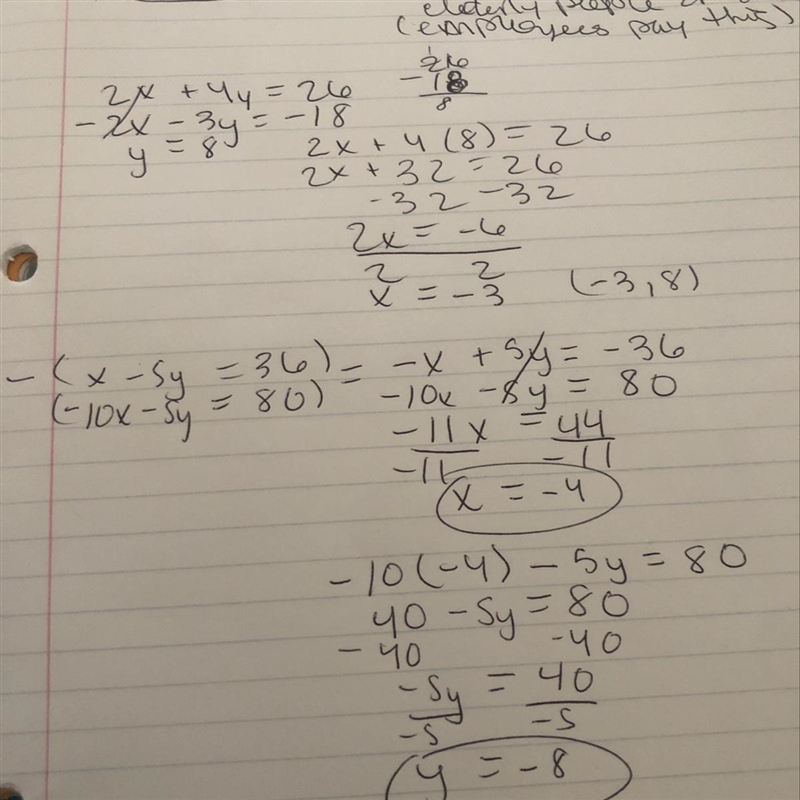 elderly people
(employees pay this)
2x + 4y = 26
-2x - 3y = -18
y = 8
26
- 18
8
2x + 4(8) = 26
2x + 32 = 26
-32 -32
2x = -6
2 2
x = -3 (-3, 8)
- (x - 5y = 36) = -x + 5y = -36
(-10x - 5y = 80) -10x - 5y = 80
-11x = 44
-11 -11
x = -4
-10(-4) - 5y = 80
40 - 5y = 80
-40 -40
-5y = 40
-5 -5
y = -8